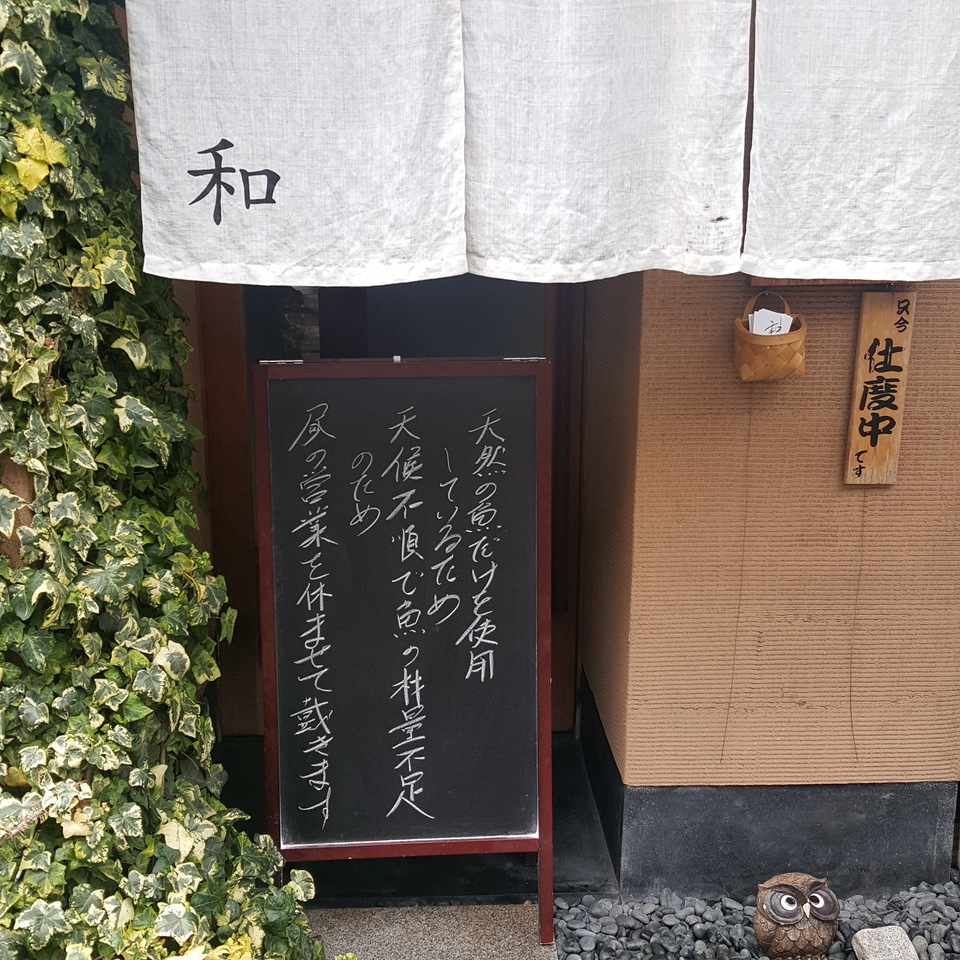 和
天然の魚だけを使用
しているため
天候不順で魚の料量不足
のため
昼の営業を休ませて戴きます
只今
仕度中
です